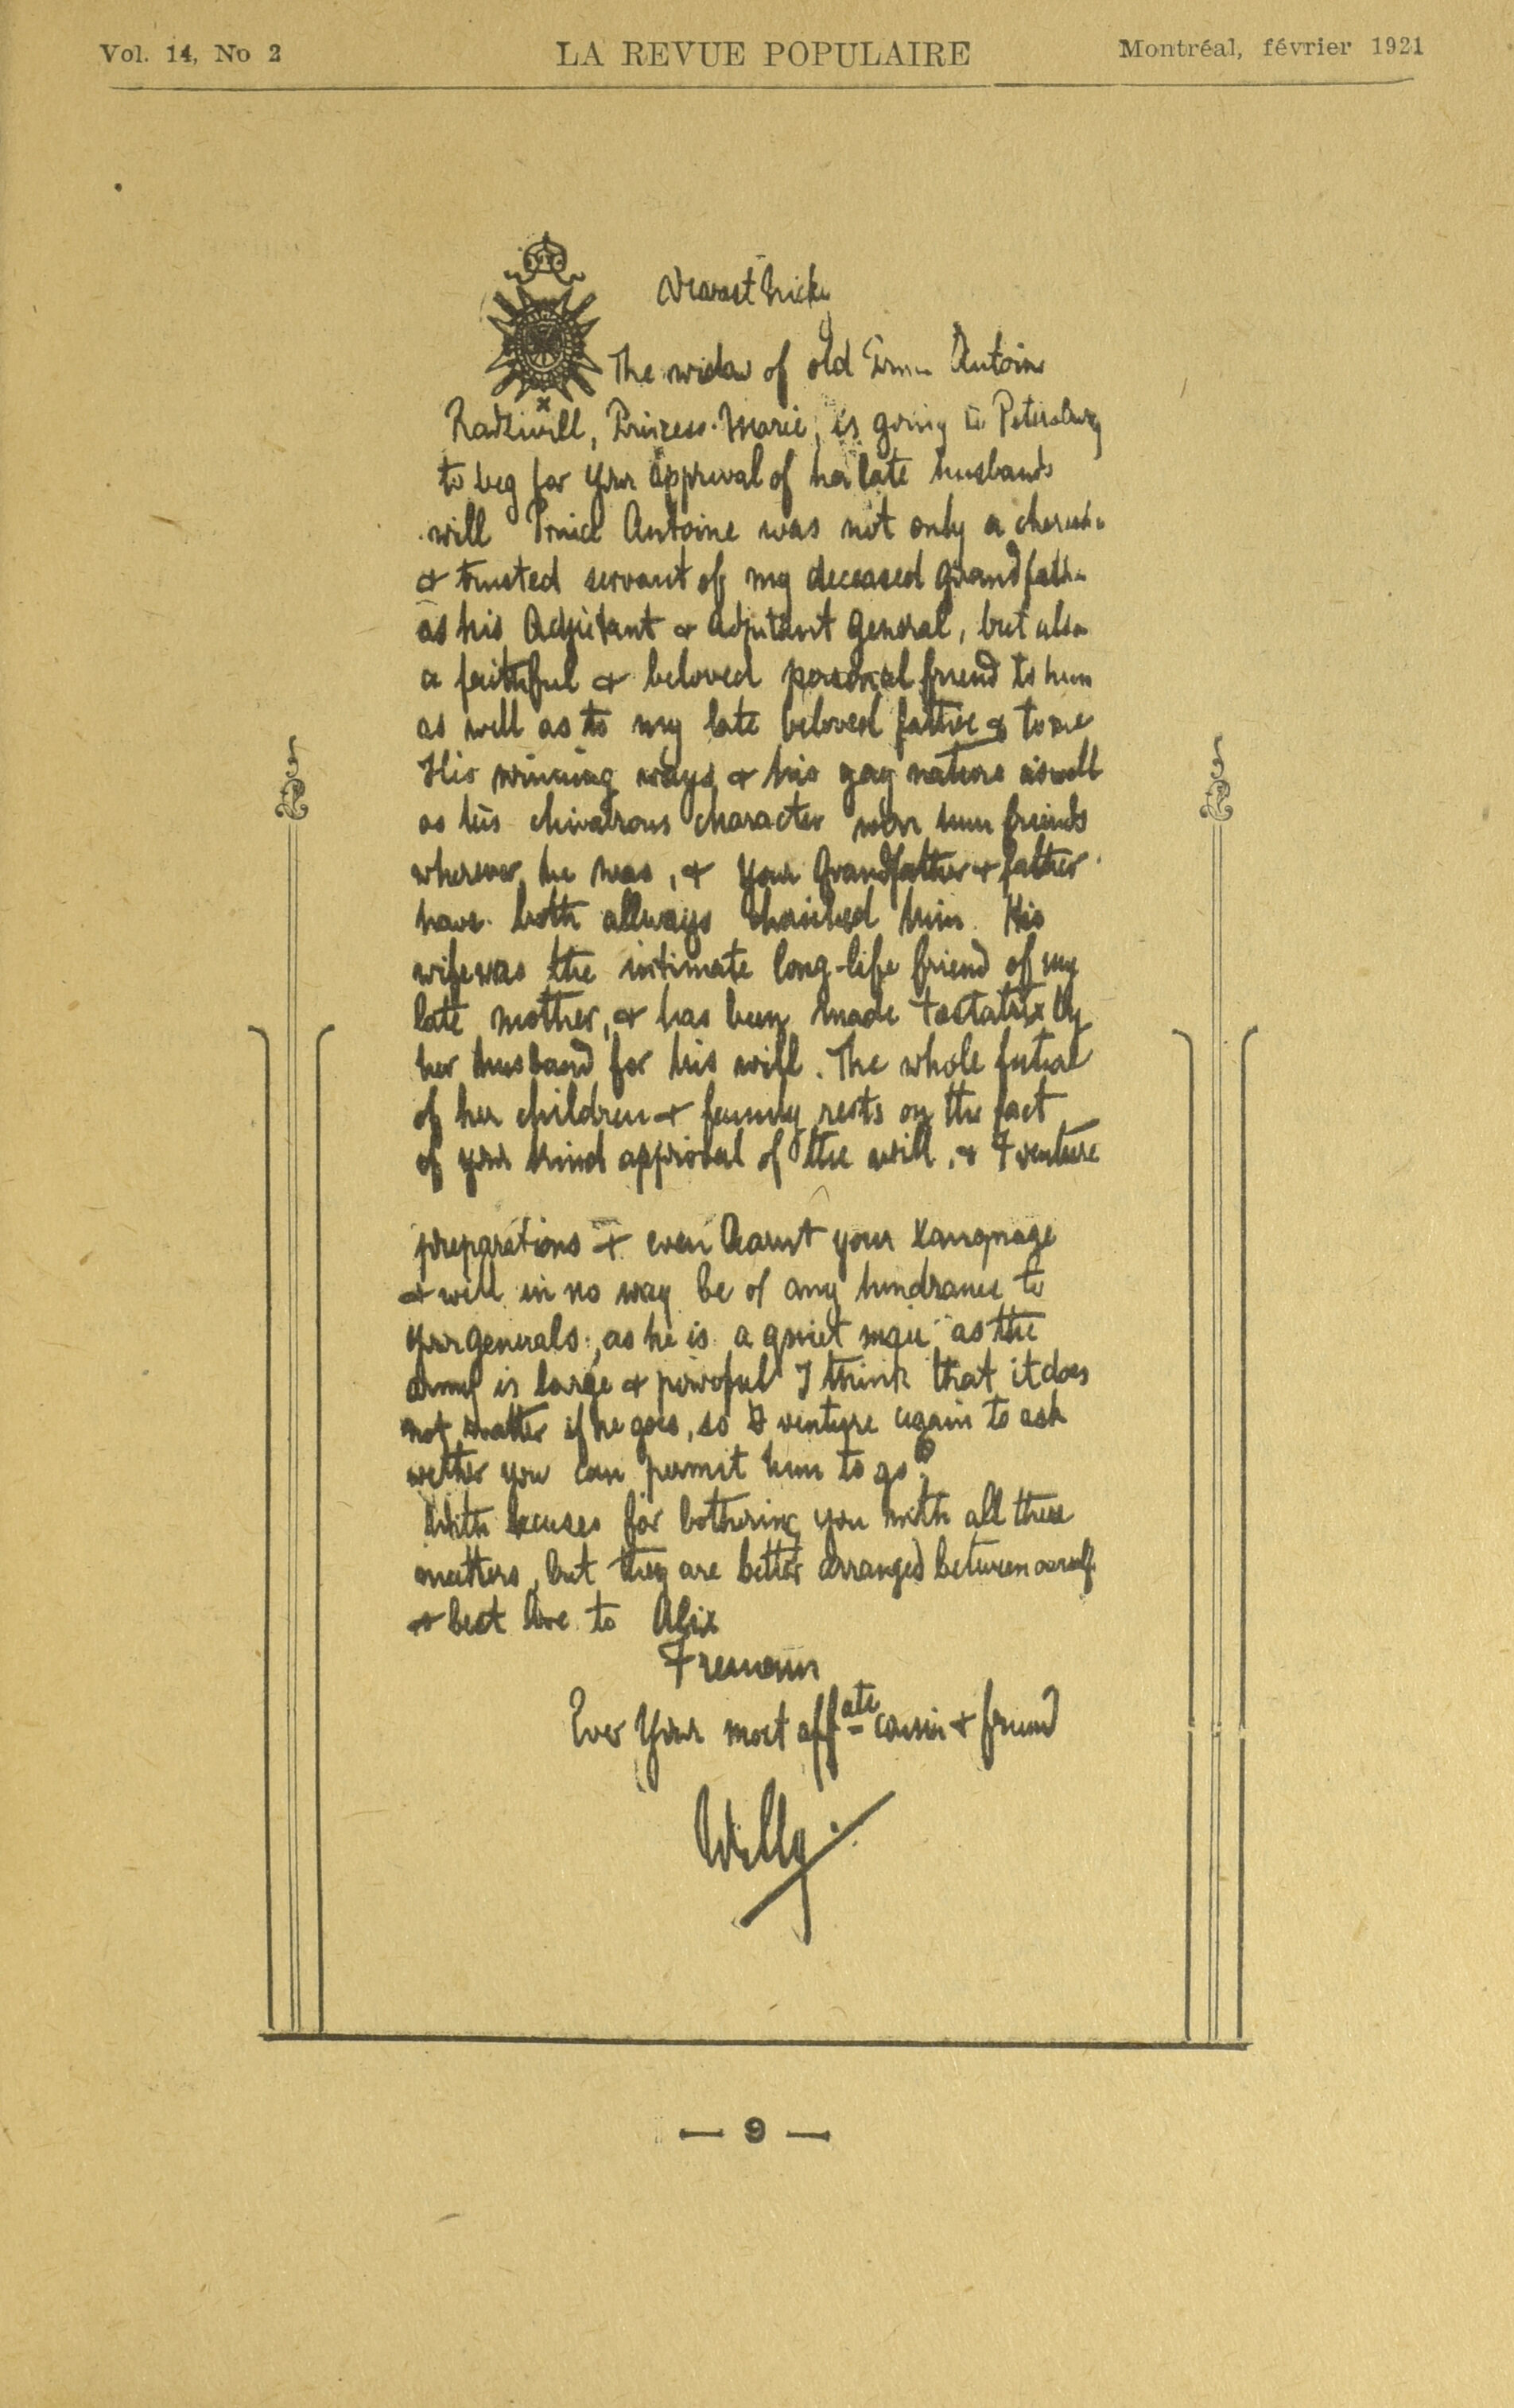 Vol. 14, No 2
LA REVUE POPULAIRE
Montréal, février 1921
Dearest Nicky
The widow of old Antoine
Radziwill, Princess Marie, is going to Petersburg
to beg for your approval of her late husbands
will Prince Antoine was not only a
& trusted servant of my deceased Grandfather
as his Adjutant & Adjutant General, but also
a faithful & beloved personal friend to him
as well as to my late beloved father & to me
His winning ways & his gay nature as well
as his chivalrous character won him friends
wherever he was, & your Grandfather & father
have both allways cherished him. His
wife was the intimate long-life friend of my
late mother, & has been made testatrix by
her husband for his will. The whole future
of her children & family rests on the fact
of your kind approval of the will, & I venture
preparations & even learnt your Language
& will in no way be of any hindrance to
your generals, as he is a quiet man as the
army is large & powerful I think that it does
not matter if he goes, so I venture again to ask
wether you can permit him to go?
With excuses for bothering you with all these
matters, but they are better arranged between ourself
& best love to Alix
I remain
Ever Your most aff ate cousin & friend
Willy
— 9 —